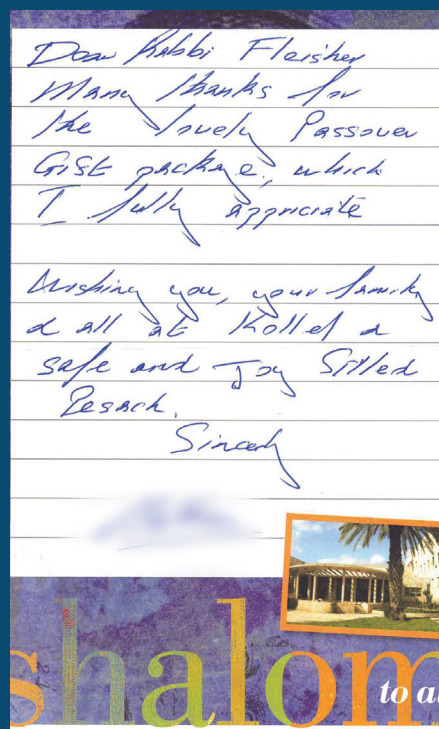 Dear Rabbi Fleisher
Many thanks for
the lovely Passover
Gift package, which
I fully appriciate
Wishing you, your family
& all at Kollel a
safe and Joy filled
Pesach.
Sincerly
shalom
to al